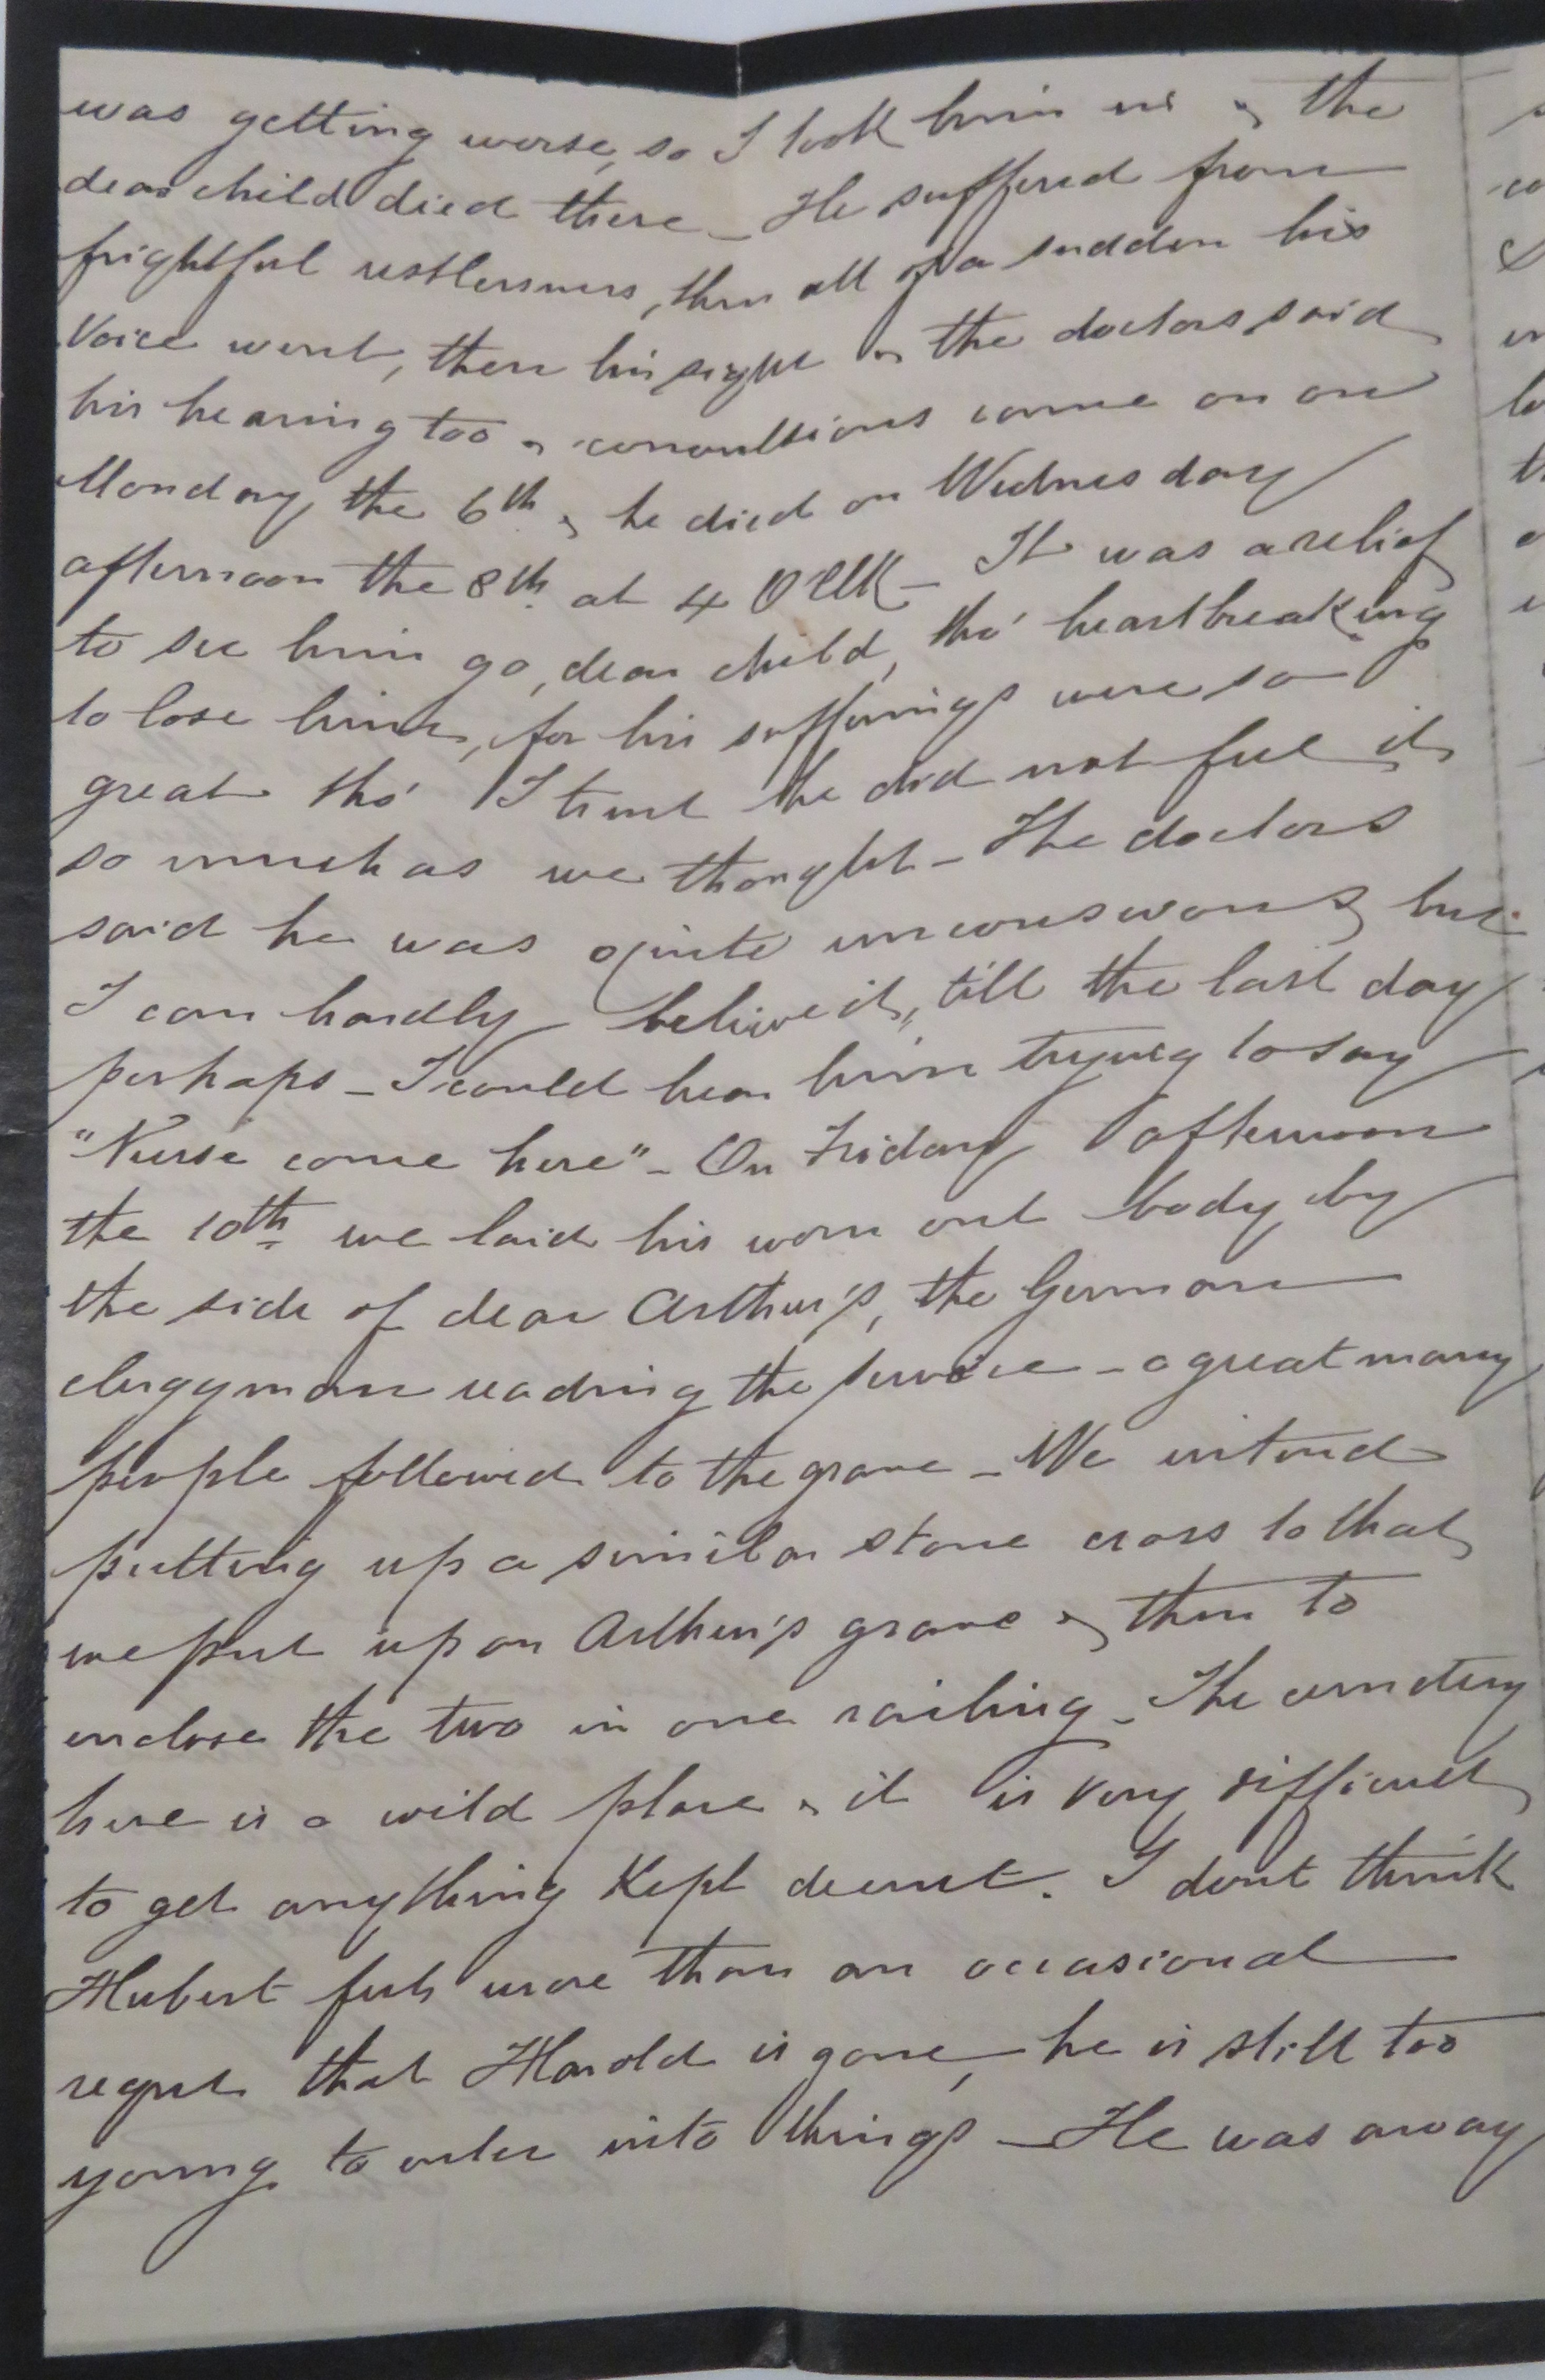 was getting worse, so I took him in & the
dear child died there _ He suffered from
frightful restlessness, then all of a sudden his
Voice went, then his sight & the doctors said
his hearing too & convultsions came on on
Monday the 6th & he died on Wednesday
afternoon the 8th at 4 OClk _ It was a relief
to see him go, dear child, tho' heartbreaking
to lose him, for his sufferings were so
great tho' I trust he did not feel it
so much as we thought _ The doctors
said he was quite unconscious, but
I can hardly believe it, till the last day
perhaps _ I could hear him trying to say
"Nurse come here" _ On Friday afternoon
the 10th we laid his worn out body by
the side of dear Arthur's, the German
clergyman reading the service _ a great many
people followed to the grave _ We intend
putting up a similar stone cross to that
we put up on Arthur's grave & then to
enclose the two in one railing _ The cemetery
here is a wild place & it is very difficult
to get anything Kept decent. I dont think
Hubert feels more than an occasional
regret that Harold is gone, he is still too
young to enter into things _ He was away